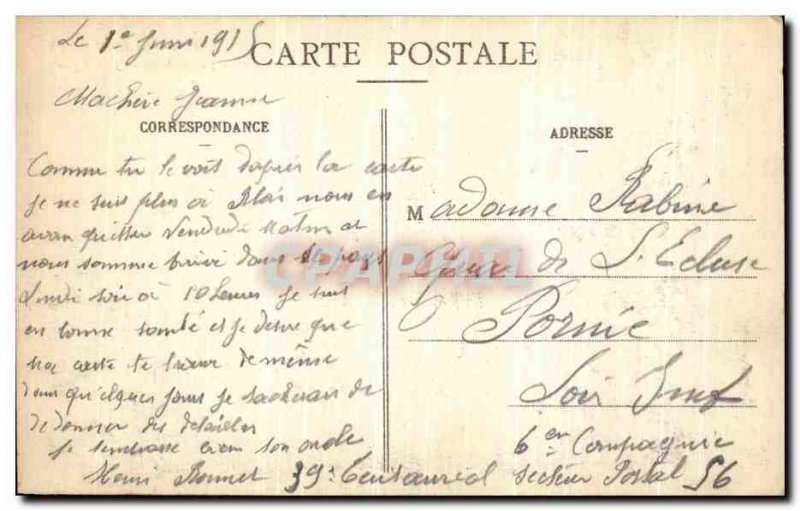 Le 1e Juin 1915
CARTE POSTALE
Machère Jeanne
CORRESPONDANCE
ADRESSE
Comme tu le voit dapres la carte
je ne suis plus a Blois nous en
avon quitter Vendredi Matin et
nous somme arrivé dans le pays
Lundi soir a 10 heures je suis
en bonne santé et je desire que
ma carte te trouve de même
dans quelques jours je
de donner des détailes
je tembrasse bien ton oncle
Henri 39e Territorial
Madame Rabine
Gare de L. Ecluse
Pornic
Loir Inf
6em Compagnie
Secteur Postal 56
CPAPHIL